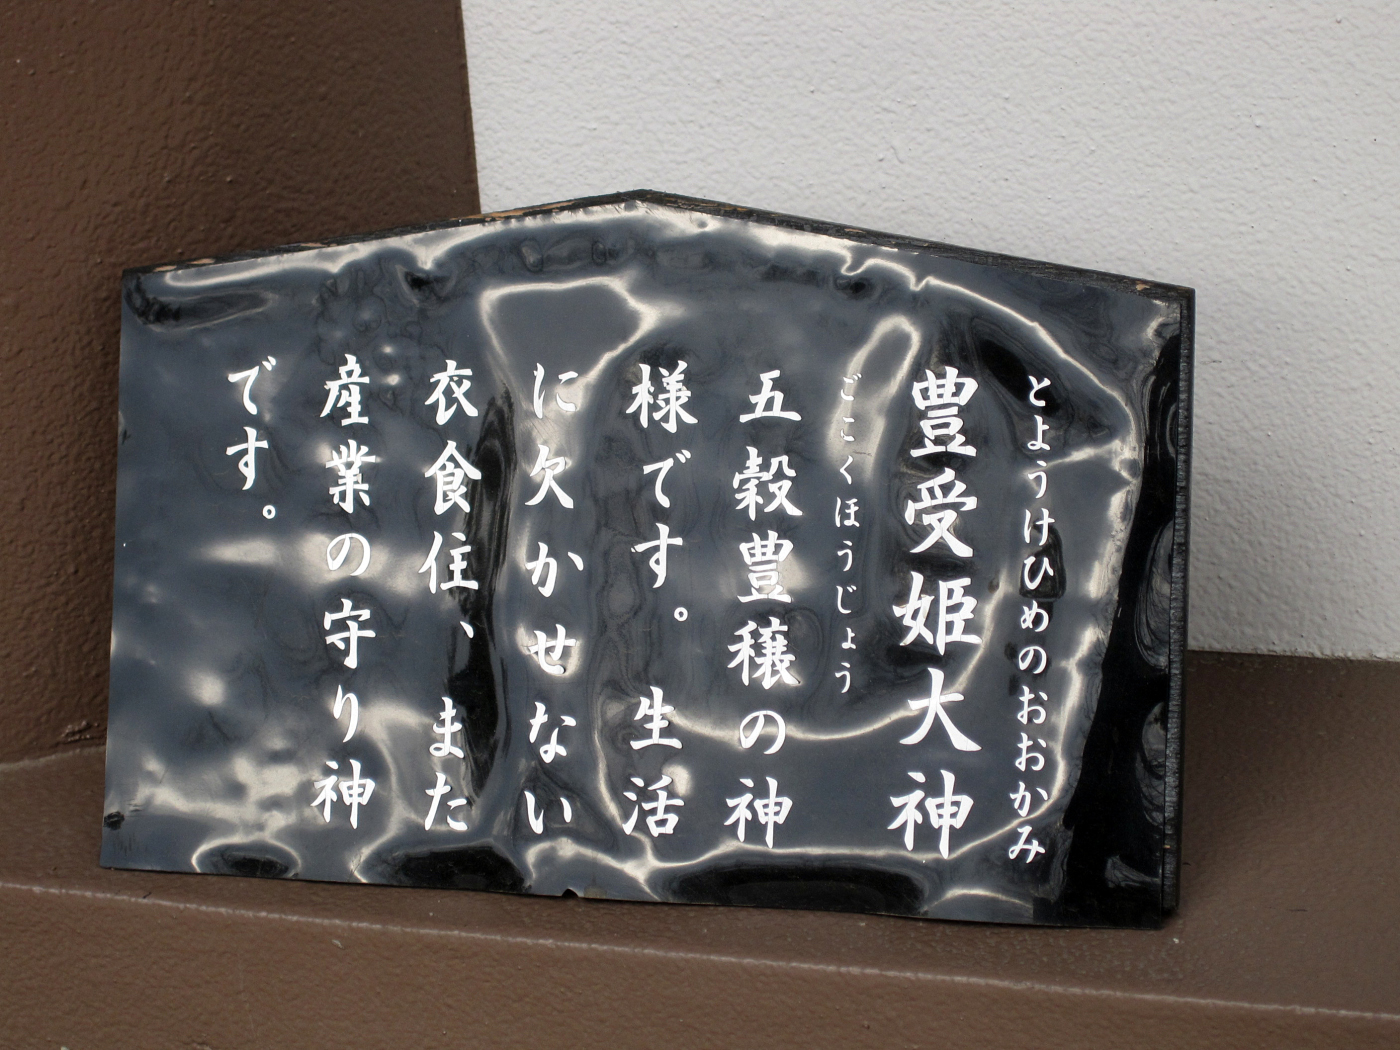 とようけひめのおおかみ
豊受姫大神
ごこくほうじょう
五穀豊穣の神
様です。生活
に欠かせない
衣食住、また
産業の守り神
です。